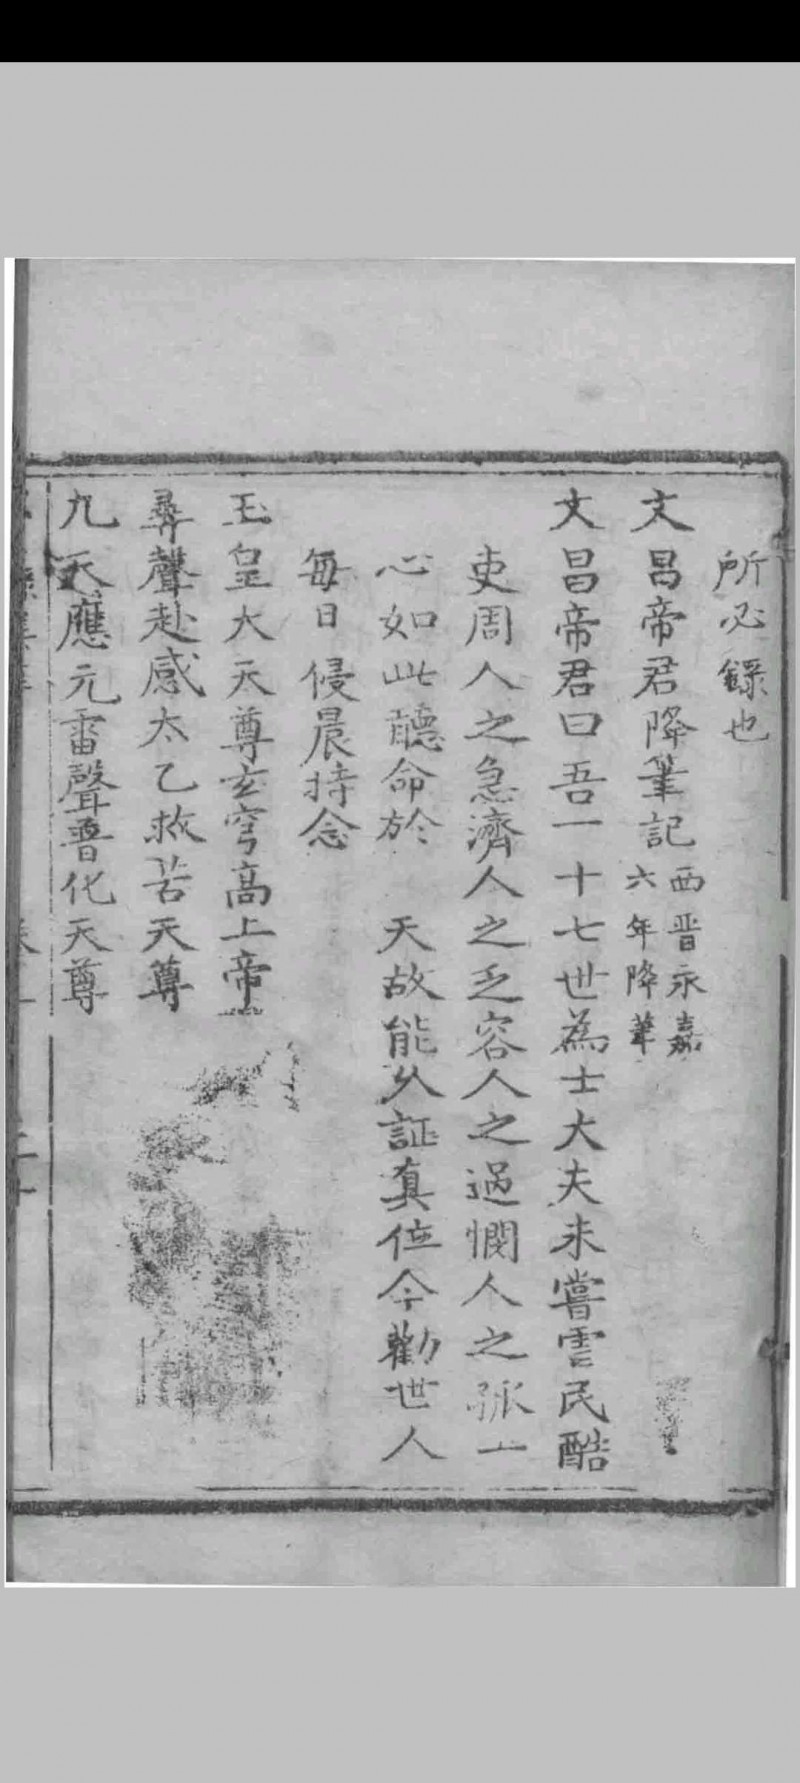 所必錄也
文昌帝君降筆記 西晋永嘉
六年降筆
文昌帝君曰吾一十七世為士大夫未嘗雪民酷
吏周人之急濟人之乏容人之過憫人之孤一
心如此聽命於 天故能久証真位今勸世人
每日侵晨持念
玉皇大天尊玄穹高上帝
尋聲赴感太乙救苦天尊
九天應元雷聲普化天尊